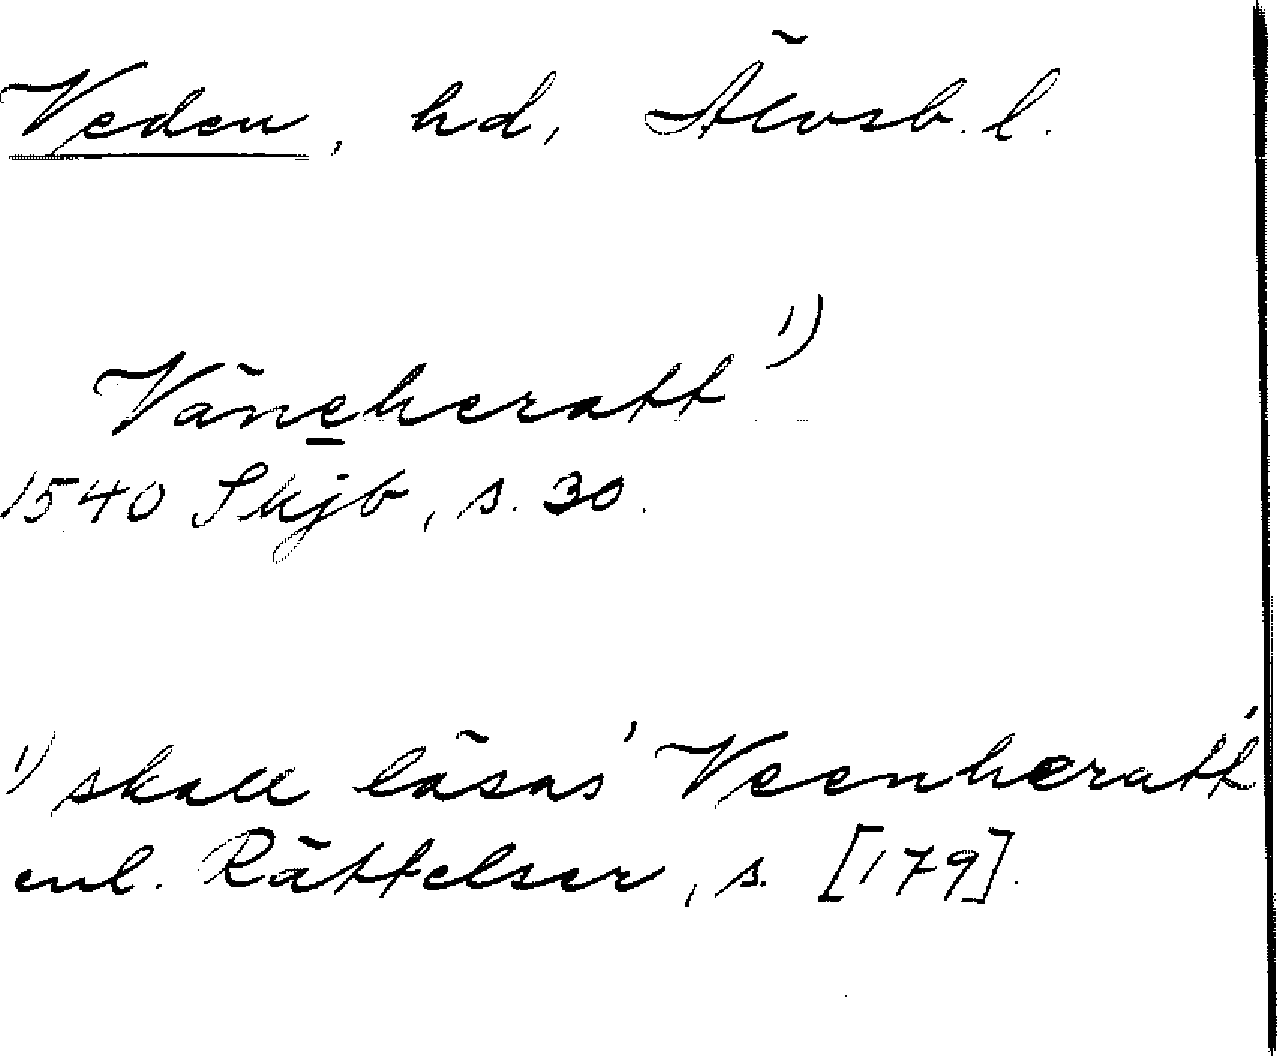 Veden, hd, Älvsb. l.
Väneheratt ¹)
1540 Skjb, s. 30.
¹) skall läsas 'Veenheratt'
enl. Rättelser, s. [179].